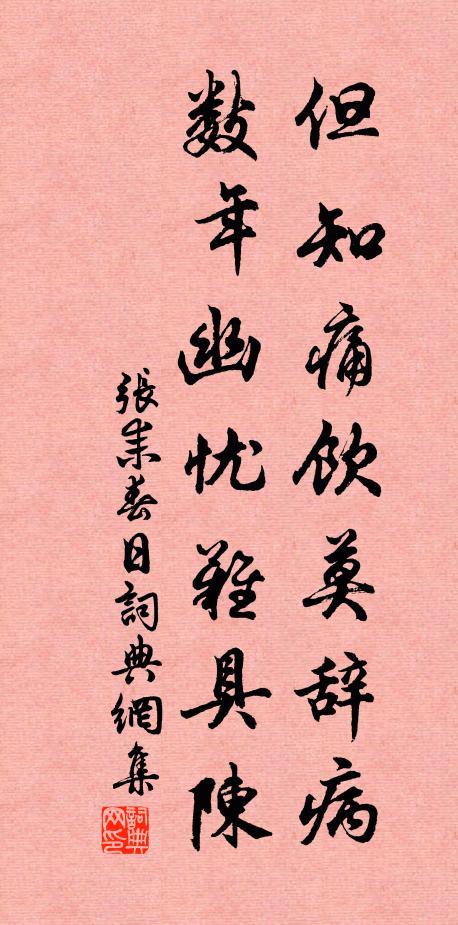 但知痛饮莫辞病
数年幽忧难具陳
張耒春日詞典網集
詞典网印